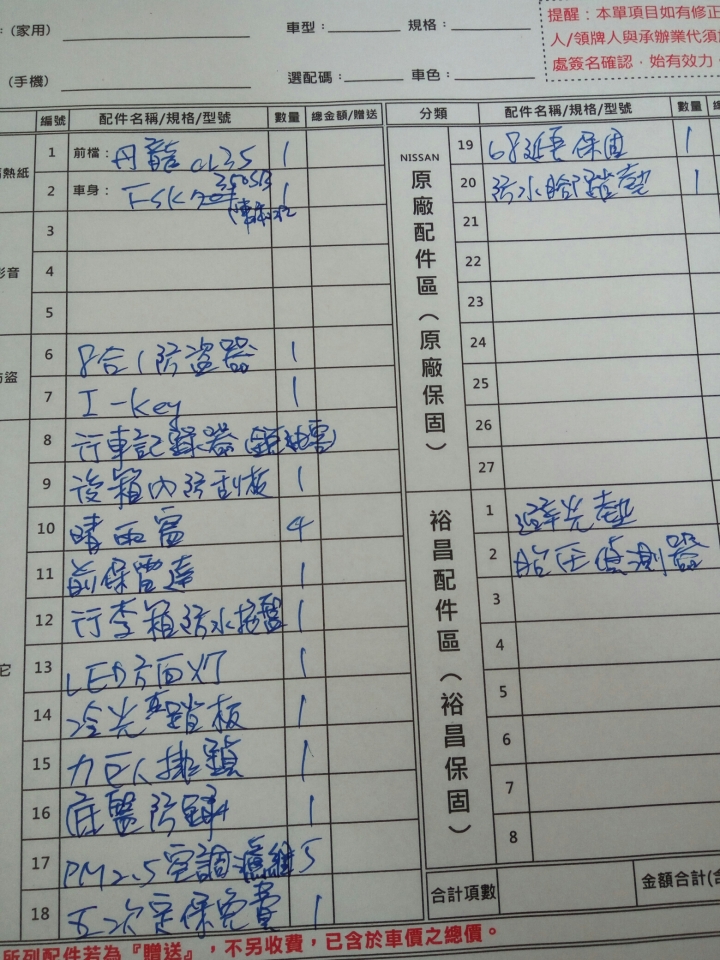 ：(家用)
車型：
規格：
(手機)
選配碼：
車色：
提醒：本單項目如有修正
人/領牌人與承辦業代須
處簽名確認，始有效力。
編號 配件名稱/規格/型號 數量 總金額/贈送
熱紙
1 前檔：丹龍 1
2 車身：FSK 1
3
影音
4
5
防盜
6 8合1防盜器 1
7 I-key 1
8 行車記錄器
9 後箱內防刮板 1
10 晴雨窗 4
11 前保雷達 1
12 行李箱防水托盤 1
13 LED方向灯 1
14 冷光踏板 1
15 力巨人排鎖 1
16 底盤防銹 1
17 PM2.5空調濾網 5
18 五次定保免費 1
它
分類 配件名稱/規格/型號 數量 總
NISSAN
原廠配件區（原廠保固）
19 延長保固 1
20 防水踏墊 1
21
22
23
24
25
26
27
裕昌配件區（裕昌保固）
1 避光墊
2 胎压偵測器
3
4
5
6
7
8
合計項數
金額合計(含
所列配件若為『贈送』，不另收費，已含於車價之總價。